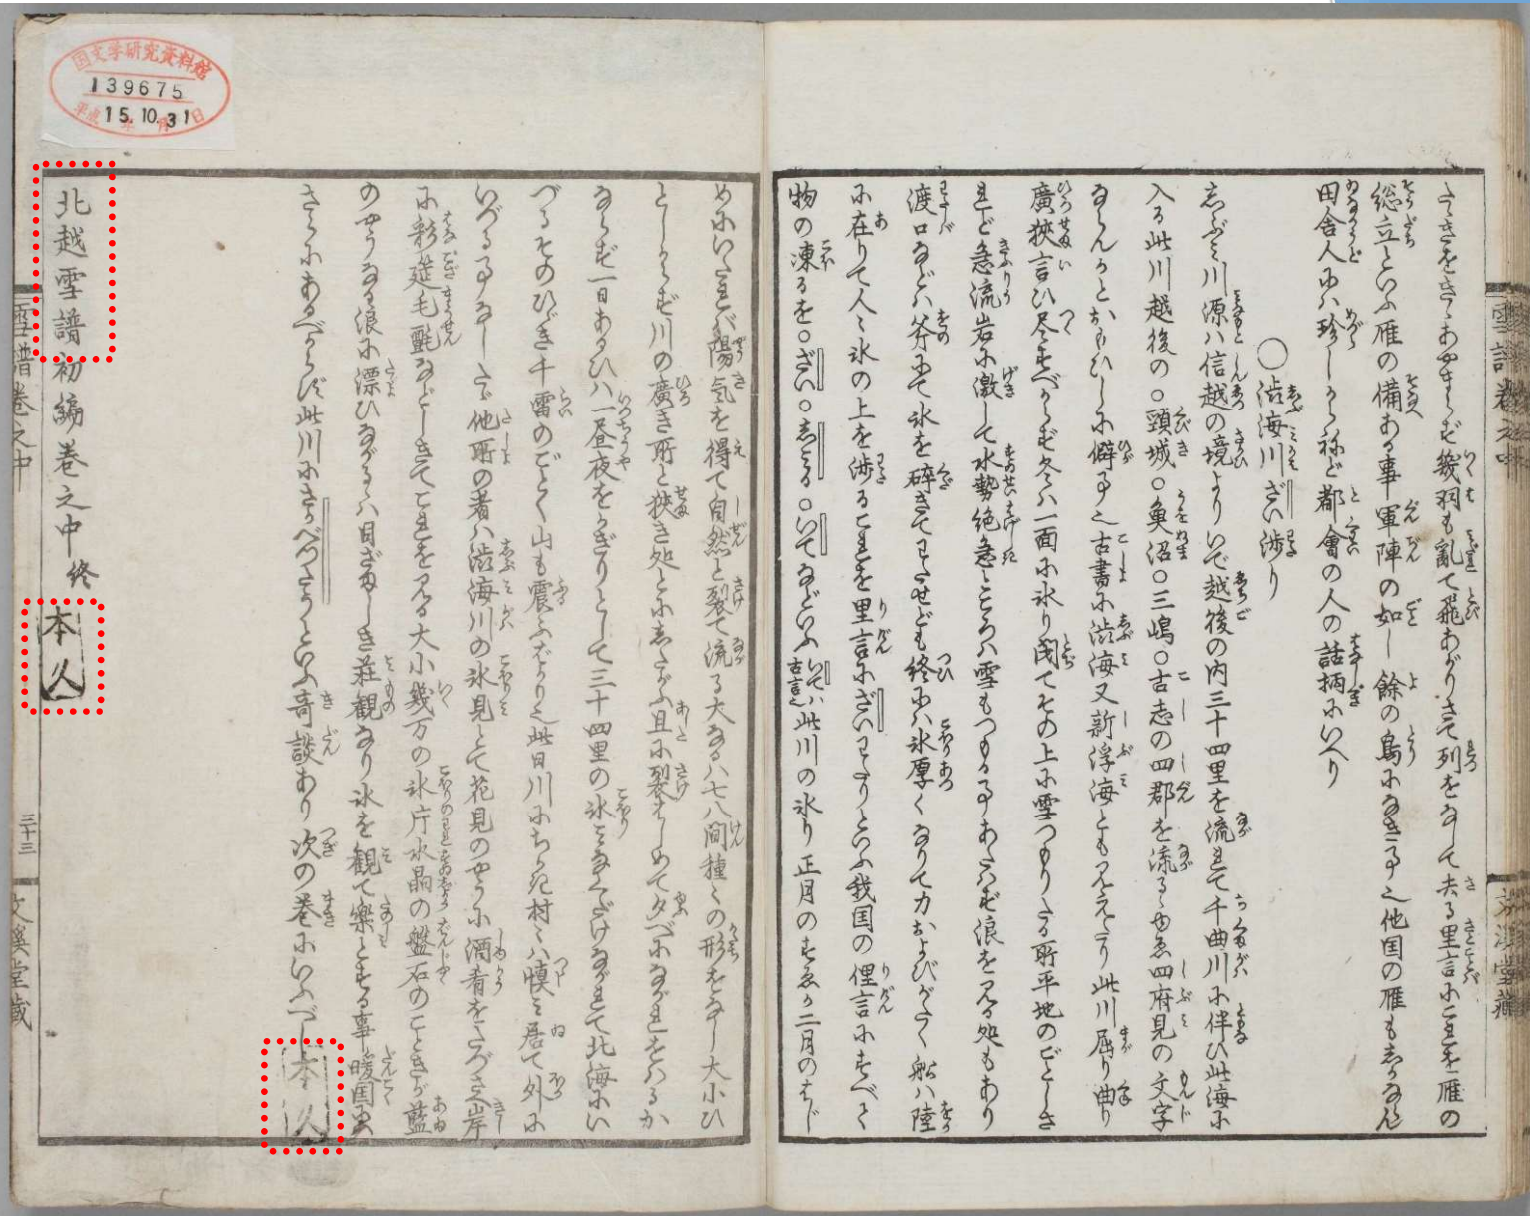 たゝきをきゝあやまらず幾羽も乱て飛あがりさて列をなして去る里言にこれを雁の
総立といふ雁の備ある事軍陣の如し餘の鳥になき事之他国の雁もしかなん
田舎人には珍しからねど都會の人の話柄にいへり
○渋海川ざい渉り
しぶミ川源ハ信越の境よりいで越後の内三十四里を流れて千曲川に伴ひ此海に
入る此川越後の○頸城○魚沼○三嶋○古志の四郡を流るゆゑ四府見の文字
ならんかとおもひしに僻事之古書に渋海又新浮海とも見えたり此川屈り曲り
廣狭言ひ尽すべからず冬ハ一面に氷り閉てその上に雪つもりたる所平地のごとしさ
れど急流岩に激して水勢絶急ところハ雪もつもる事あたはず浪を見る処もあり
渡口などハ斧にて氷を砕きてわたせども終にハ氷厚くなりて力およびがたく船ハ陸
に在りて人々氷の上を渉るこれを里言にざいわたりといふ我国の俚言にすべて
物の凍るを○ざい○しとる○いてなどいふいてハ古言之此川の氷り正月のすゑか二月のはじ
めにいたれバ陽気を得て自然と裂て流る大なるハ七八間種々の形をなし大小ひ
としからず川の廣き所と狭き処とにしたがふ且に裂はじめて夕べにながれをはるか
ならず一日あるひハ一昼夜をかぎりとして三十四里の氷ミなくだけながれて北海にい
づるそのひゞき千雷のごとく山も震ふばかり之此日川にちかき村々ハ慎ミ居て外に
いづる事なしたゞ他所の者ハ渋海川の氷見とて花見のやうに酒肴をたづさえ岸
に彩筵毛氈などしきてこれを見る大小幾万の氷片水晶の盤石のごときが藍
のやうなる浪に漂ひながるゝハ目ざましき荘観なり氷を観て楽とする事暖国に
さらにあるべからず此川にさかべつたうといふ奇談あり次の巻にいふべし
本久
北越雪譜初編巻之中 終
本久
雪譜巻之中
三十三
文溪堂蔵
国文学研究資料館
139675
平成 15.10.31